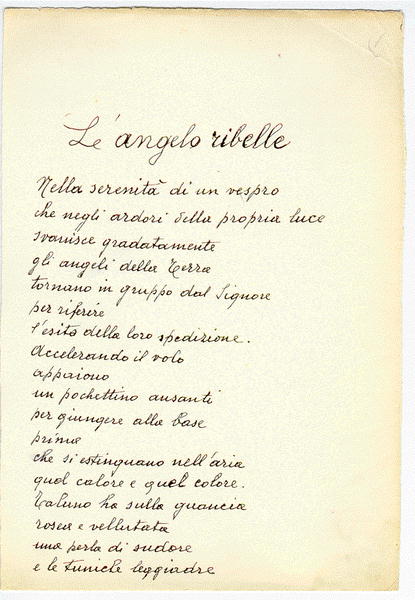 Le angelo ribelle
Nella serenità di un vespro
che negli ardori della propria luce
svanisce gradatamente
gli angeli della Terra
tornano in gruppo dal Signore
per riferire
l'esito della loro spedizione.
Accelerando il volo
appaiono
un pochettino ansanti
per giungere alla base
prima
che si estinguano nell'aria
quel calore e quel colore.
Taluno ha sulla guancia
rosea e vellutata
una perla di sudore
e le tuniche leggiadre